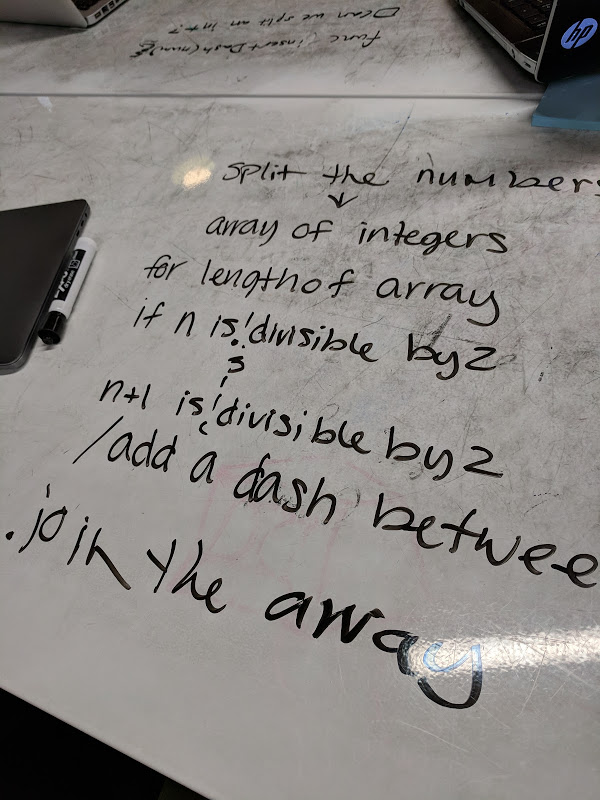 func insertDash(num){
can we split an int?
hp
split the numbers
↓
array of integers
for length of array
if n is !divisible by 2
&
n+1 is !divisible by 2
/add a dash betwee
.join the array